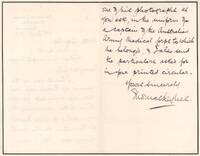 one of his photographs as
you ask, in the uniform of
a Captain of the Australian
Army Medical Corps to which
he belongs, & I also send
the particulars asked for
in your printed circular.
Yours sincerely